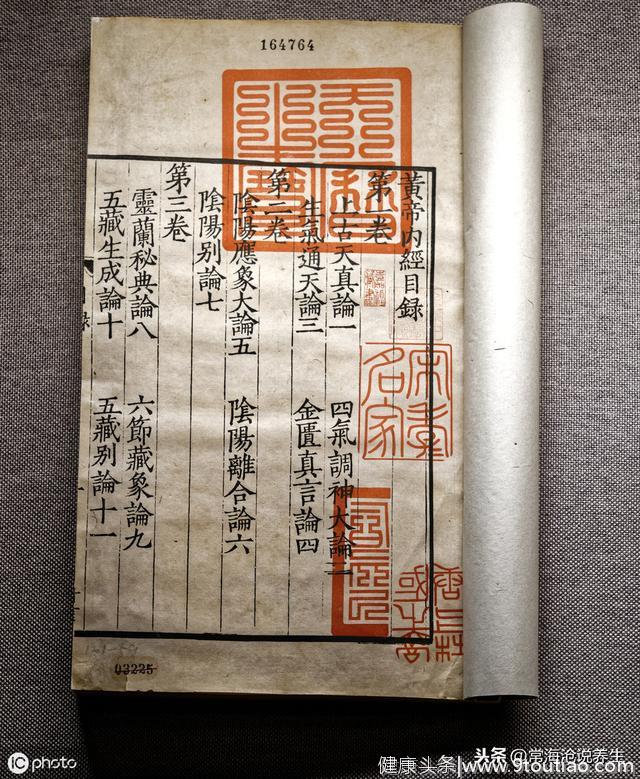 164764
黃帝內經目錄
第一卷
上古天真論一 四氣調神大論二
生氣通天論三 金匱真言論四
第二卷
陰陽應象大論五 陰陽離合論六
陰陽别論七
第三卷
靈蘭秘典論八 六節藏象論九
五藏生成論十 五藏别論十一
錄
03225
iC photo
头条@常海沧说养生
健康头条|www.9toutiao.com